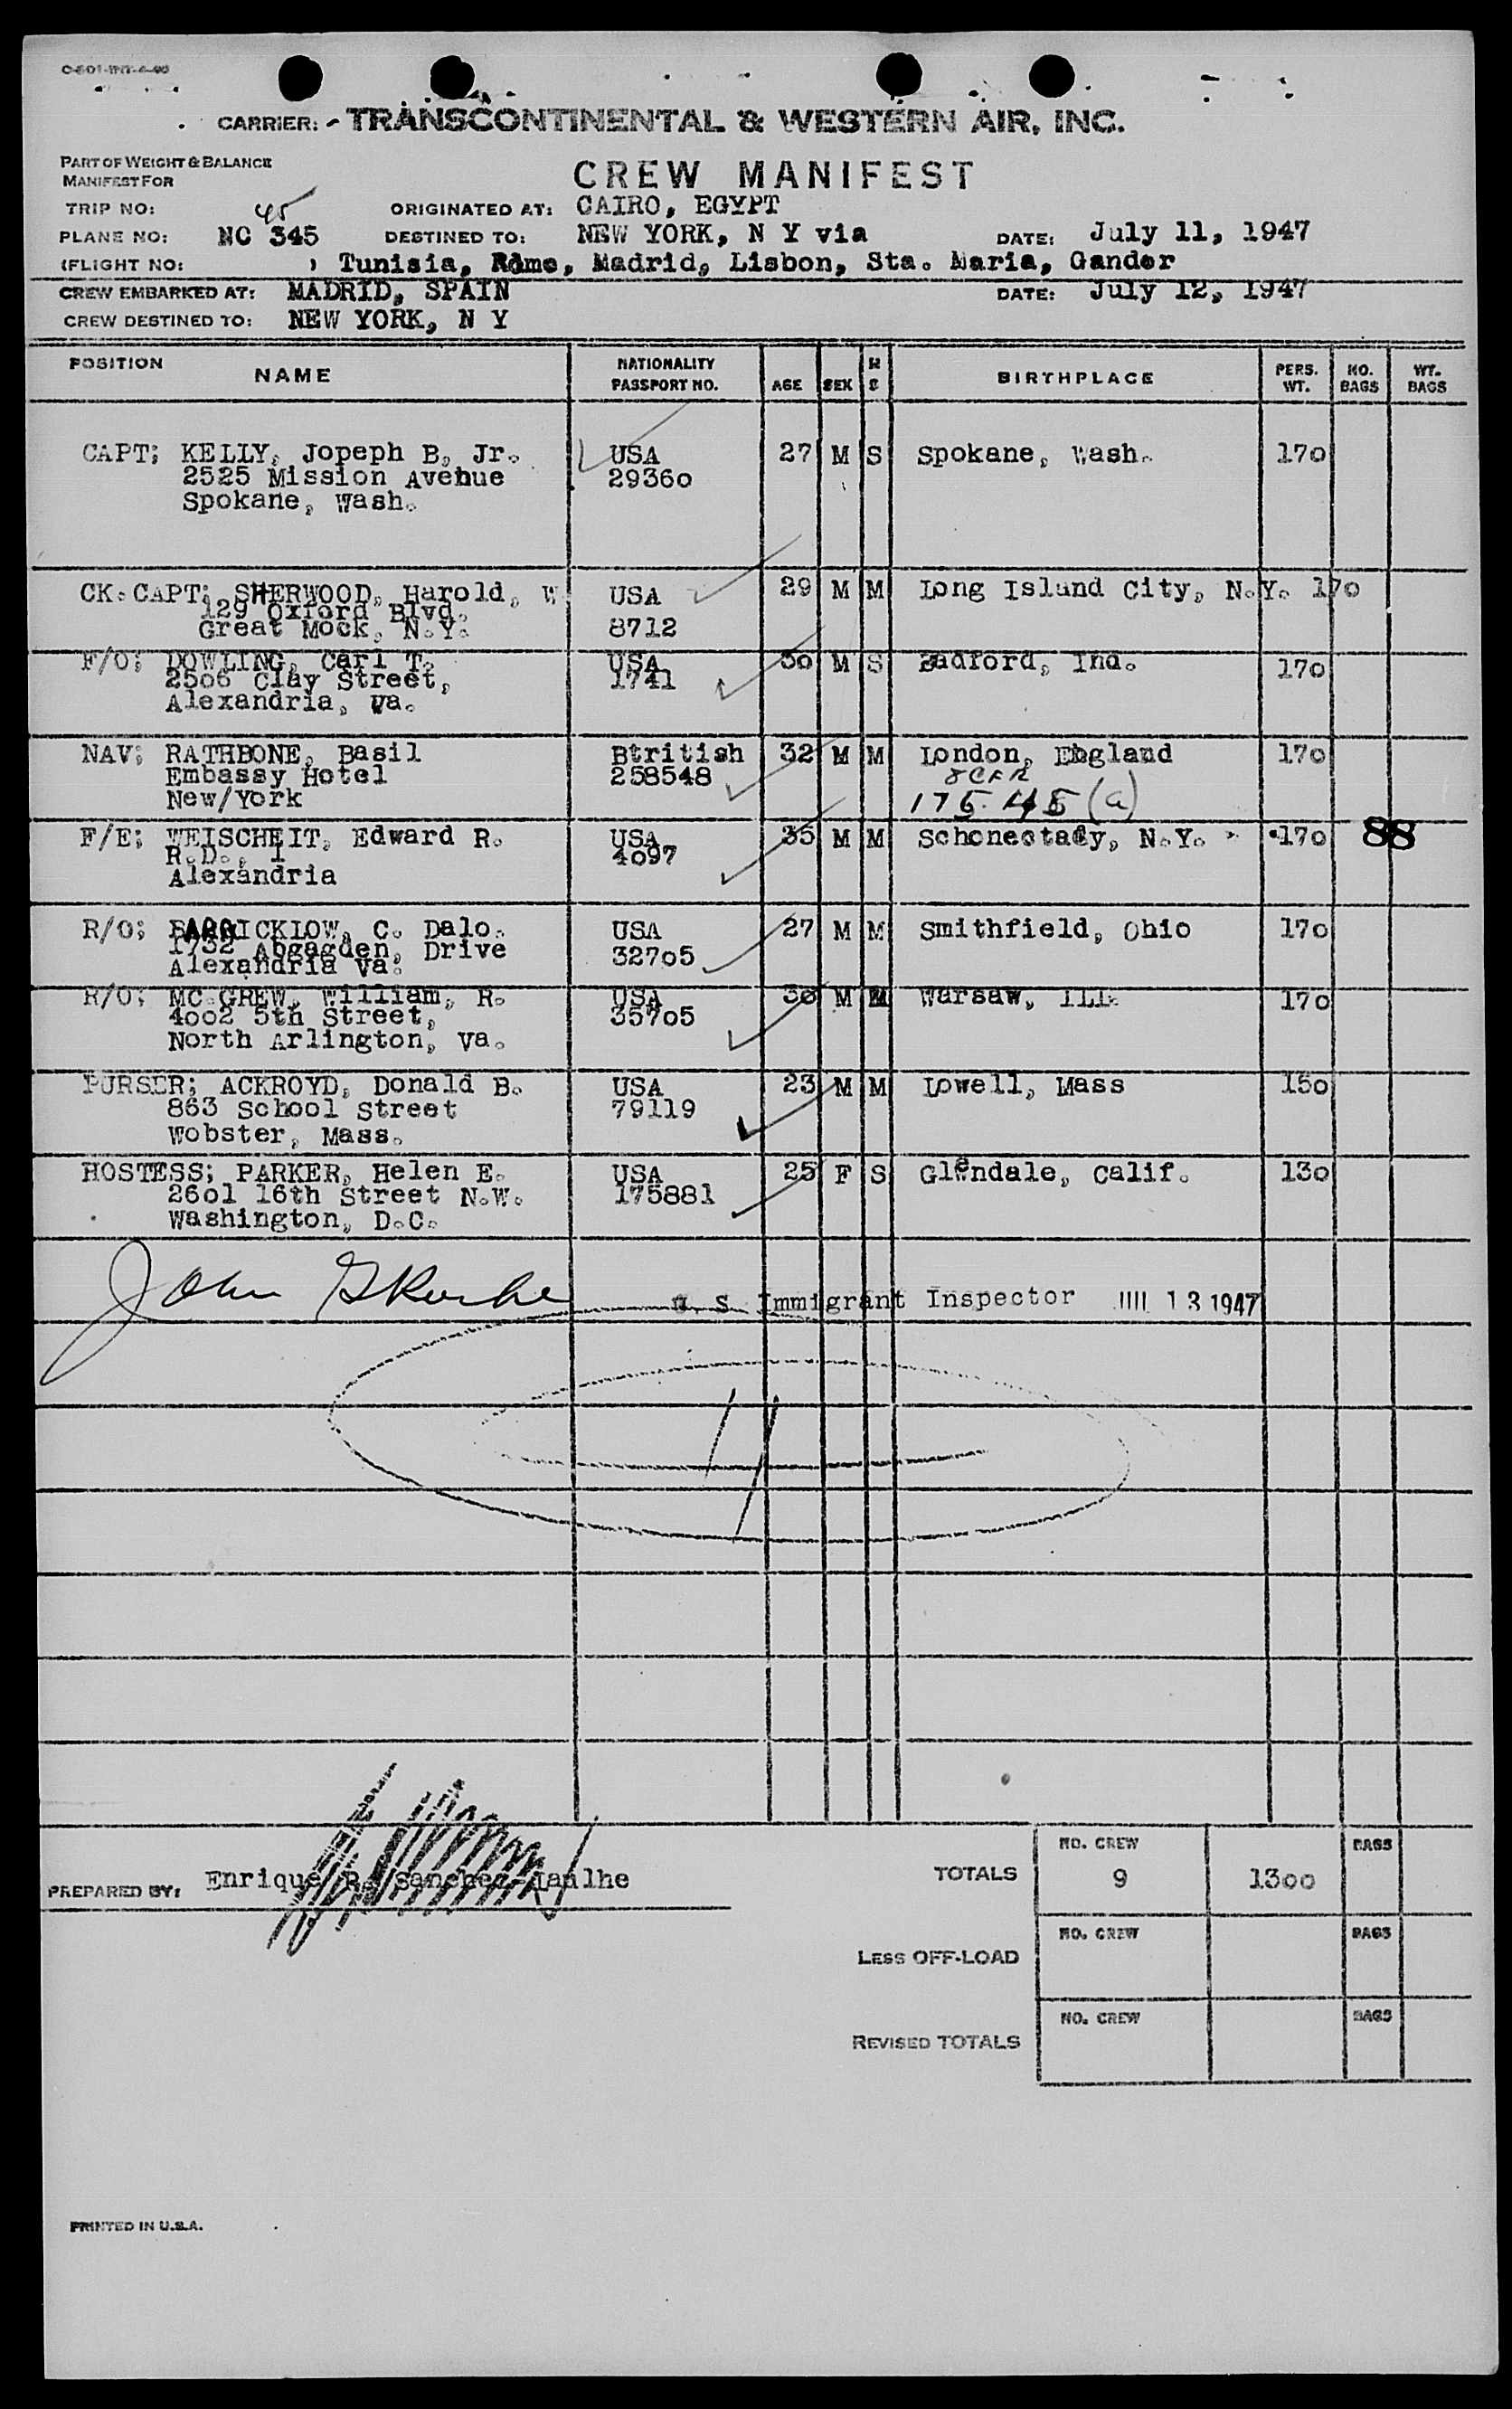 CARRIER: - TRANSCONTINENTAL & WESTERN AIR, INC.
PART OF WEIGHT & BALANCE
MANIFEST FOR
CREW MANIFEST
TRIP NO: 45 ORIGINATED AT: CAIRO, EGYPT
PLANE NO: NC 345 DESTINED TO: NEW YORK, N Y via DATE: July 11, 1947
(FLIGHT NO: ) Tunisia, Rome, Madrid, Lisbon, Sta. Maria, Gander
CREW EMBARKED AT: MADRID, SPAIN DATE: July 12, 1947
CREW DESTINED TO: NEW YORK, N Y
POSITION NAME NATIONALITY PASSPORT NO. AGE SEX M S BIRTHPLACE PERS. WT. NO. BAGS WT. BAGS
CAPT; KELLY, Jopeph B, Jr. USA 27 M S Spokane, Wash. 170
2525 Mission Avehue 29360
Spokane, Wash.
CK.CAPT; SHERWOOD, Harold, W USA 29 M M Long Island City, N.Y. 170
129 Oxford Blvd.
Great Mock, N.Y. 8712
F/O; DOWLING, Carl T. USA 30 M S Badford, Ind. 170
2506 Clay Street, 1741
Alexandria, Va.
NAV; RATHBONE, Basil Btritish 32 M M London, England 170
Embassy Hotel 258548 8CFR
New/York 175.45 (a)
F/E; WEISCHEIT, Edward R. USA 35 M M Schonectady, N.Y. 170 88
R.D., 1 4097
Alexandria
R/O; BARRICKLOW, C. Dalo. USA 27 M M Smithfield, Ohio 170
1732 Abgagden, Drive 32705
Alexandria Va.
R/O; MC GREW, William, R. USA 30 M M Warsaw, ILL. 170
4002 5th Street, 35705
North Arlington, Va.
PURSER; ACKROYD, Donald B. USA 23 M M Lowell, Mass 150
863 School Street 79119
Wobster, Mass.
HOSTESS; PARKER, Helen E. USA 25 F S Glendale, Calif. 130
2601 16th Street N.W. 175881
Washington, D.C.
John
U. S. Immigrant Inspector JUL 13 1947
NO. CREW BAGS
PREPARED BY: Enrique R. Sanchez TOTALS 9 1300
NO. CREW BAGS
LESS OFF-LOAD
NO. CREW BAGS
REVISED TOTALS
PRINTED IN U.S.A.